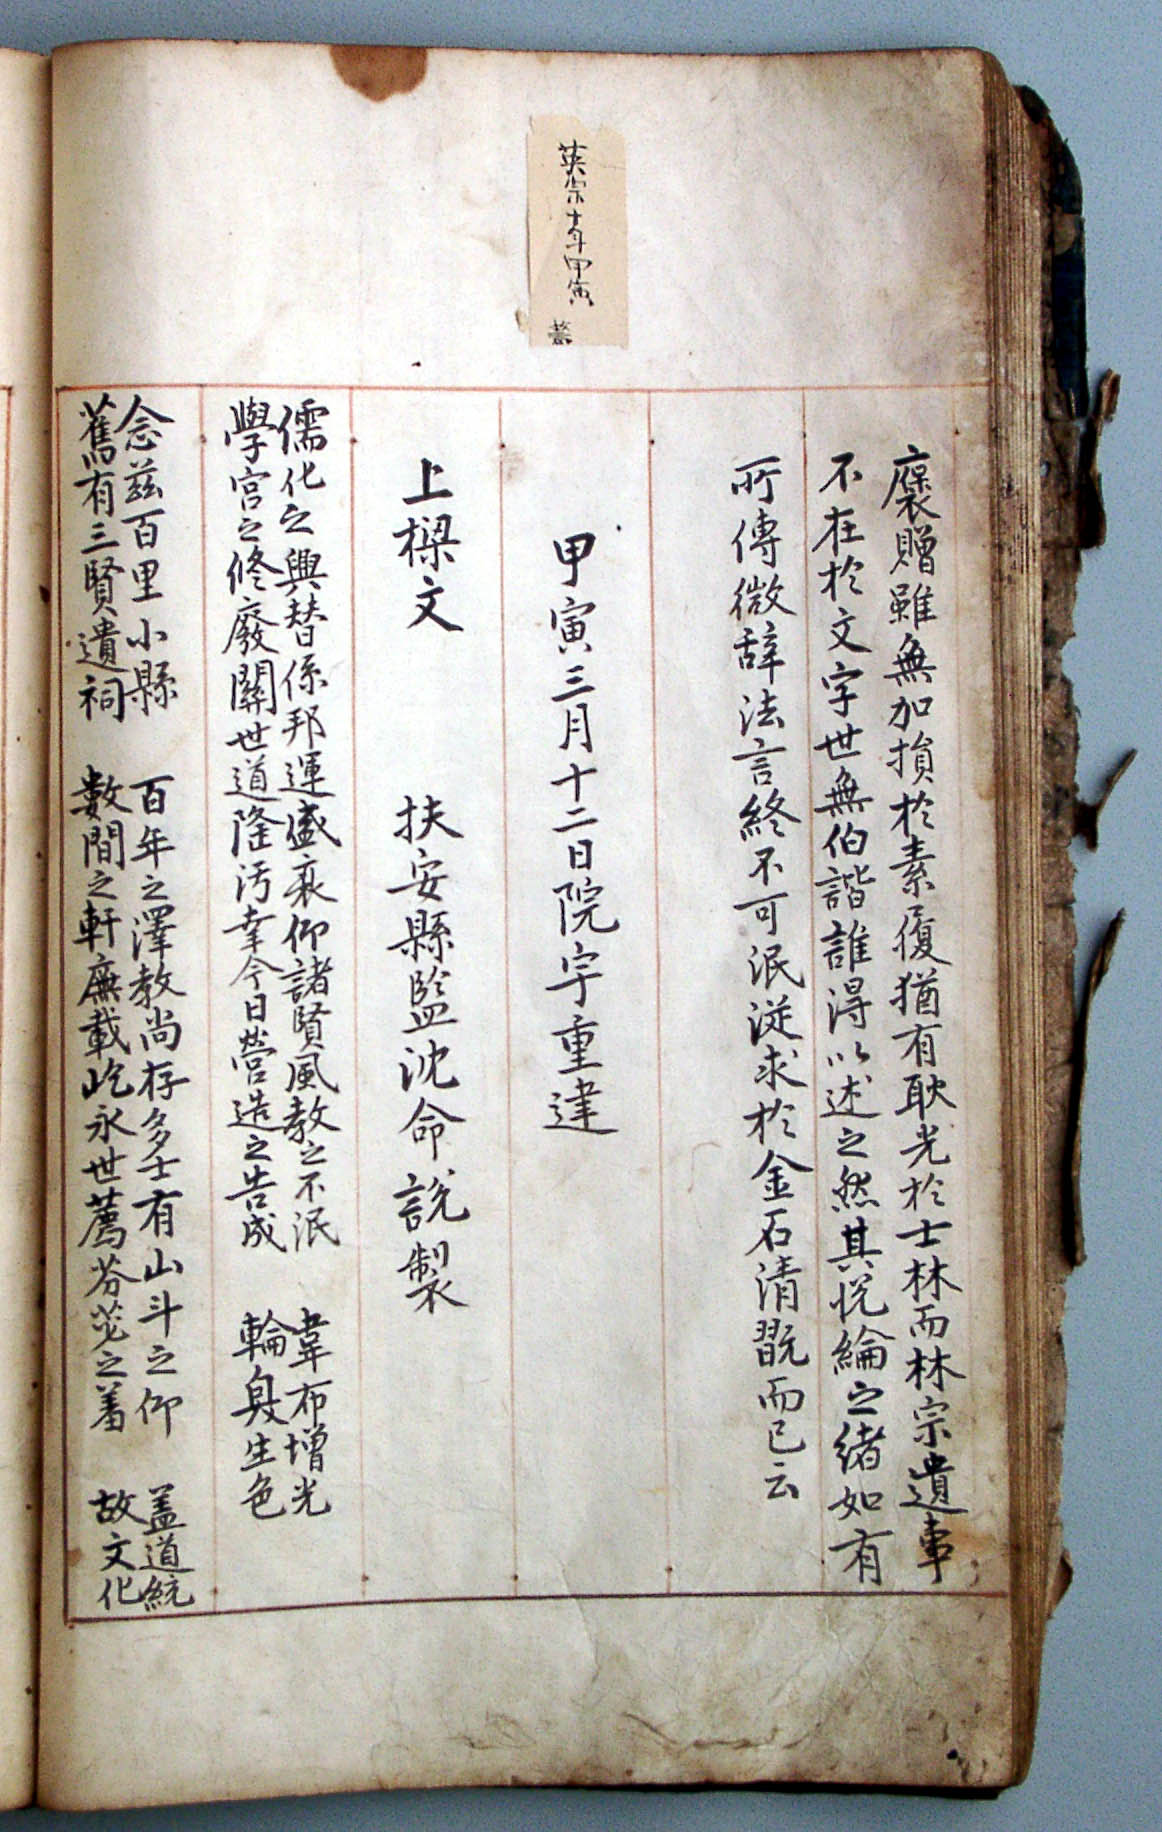 英宗十年甲寅
褒贈雖無加損於素履猶有耿光於士林而林宗遺事
不在於文字世無伯諧誰得以述之然其悅綸之緖如有
所傳微辞法言終不可泯從求於金石淸翫而已云
甲寅三月十二日院宇重建
上樑文 扶安縣監沈命說製
儒化之興替係邦運盛衰仰諸賢風敎之不泯 韋布增光
學宮之修廢關世道隆污幸今日營造之告成 輪奐生色
念茲百里小縣 百年之澤敎尙存多士有山斗之仰 盖道統
舊有三賢遺祠 數間之軒廡載屹永世薦芬苾之羞 故文化